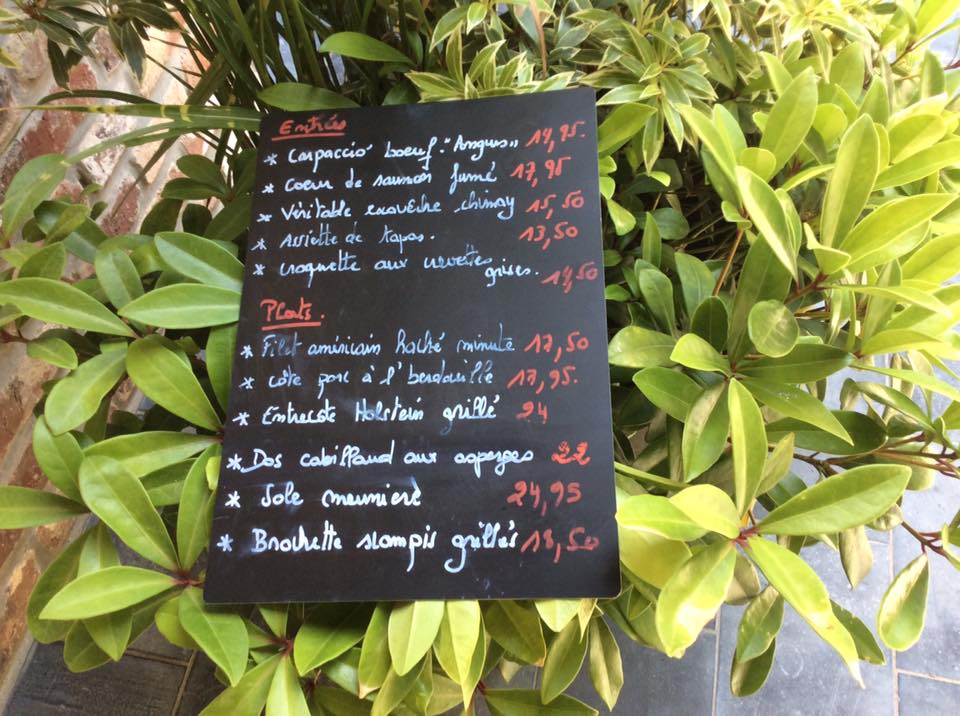 Entrées
* Carpaccio boeuf "Angus" 14,95.
* Coeur de saumon fumé 17,95
* Véritable escavèche chimay 15,50
* Assiette de tapas. 13,50
* Croquette aux crevettes grises. 14,50
Plats.
* Filet américain haché minute 17,50
* côte porc à l'berdouille 17,95.
* Entrecote Holstein grillé 24
* Dos cabillaud aux asperges 22
* Sole meuniere 24,95
* Brochette scampis grillés 18,50